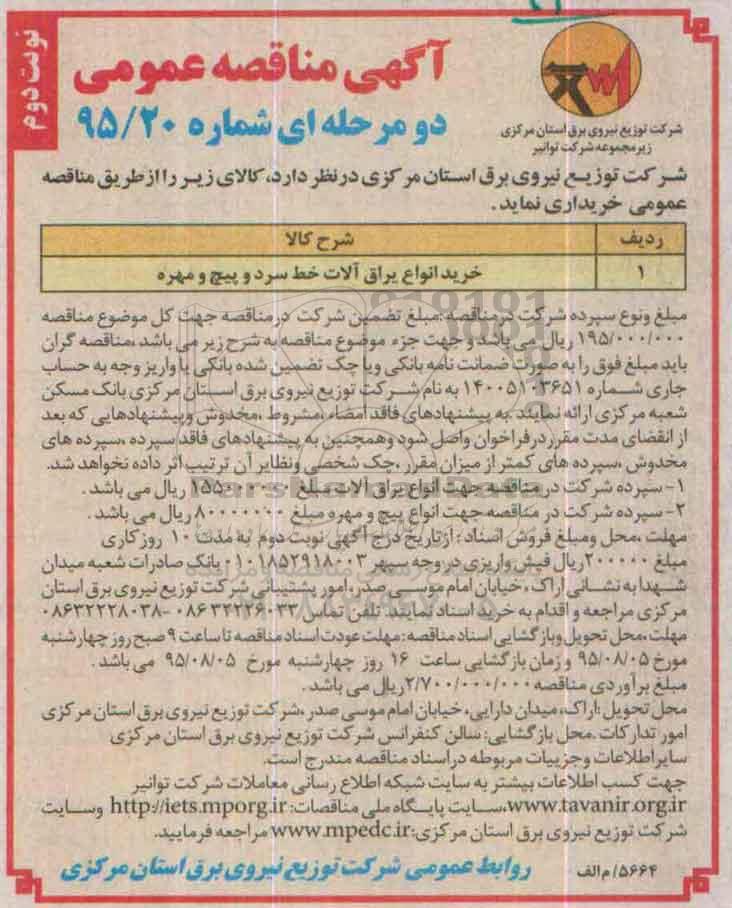 نوبت دوم
آگهی مناقصه عمومی
دو مرحله ای شماره ۹۵/۲۰
شرکت توزیع نیروی برق استان مرکزی
زیرمجموعه شرکت توانیر
شرکت توزیع نیروی برق استان مرکزی درنظر دارد، کالای زیر را از طریق مناقصه
عمومی خریداری نماید.
ردیف شرح کالا
۱ خرید انواع یراق آلات خط سرد و پیچ و مهره
مبلغ ونوع سپرده شرکت درمناقصه: مبلغ تضمین شرکت درمناقصه جهت کل موضوع مناقصه
۱۹۵/۰۰۰/۰۰۰ ریال می باشد و جهت جزء موضوع مناقصه به شرح زیر می باشد، مناقصه گران
باید مبلغ فوق را به صورت ضمانت نامه بانکی ویا چک تضمین شده بانکی یا واریز وجه به حساب
جاری شماره ۱۴۰۰۵۱۰۳۶۵۱ به نام شرکت توزیع نیروی برق استان مرکزی بانک مسکن
شعبه مرکزی ارائه نمایند. به پیشنهادهای فاقد امضاء، مشروط، مخدوش وپیشنهادهایی که بعد
از انقضای مدت مقرردرفراخوان واصل شود وهمچنین به پیشنهادهای فاقد سپرده، سپرده های
مخدوش، سپرده های کمتر از میزان مقرر، چک شخصی ونظایر آن ترتیب اثر داده نخواهد شد.
۱- سپرده شرکت در مناقصه جهت انواع یراق آلات مبلغ ۱۵۵۰۰۰۰۰۰ ریال می باشد.
۲- سپرده شرکت در مناقصه جهت انواع پیچ و مهره مبلغ ۸۰۰۰۰۰۰۰ ریال می باشد.
مهلت، محل ومبلغ فروش اسناد: ازتاریخ درج آگهی نوبت دوم به مدت ۱۰ روز کاری
مبلغ ۲۰۰۰۰۰ریال فیش واریزی در وجه سپهر ۰۱۰۱۸۵۲۹۱۸۰۰۳ بانک صادرات شعبه میدان
شهدا به نشانی اراک، خیابان امام موسی صدر، امور پشتیبانی شرکت توزیع نیروی برق استان
مرکزی مراجعه و اقدام به خرید اسناد نمایند. تلفن تماس ۰۸۶۳۲۲۲۶۰۳۳ -۰۸۶۳۲۲۲۸۰۳۸
مهلت، محل تحویل وبازگشایی اسناد مناقصه: مهلت عودت اسناد مناقصه تا ساعت ۹ صبح روز چهارشنبه
مورخ ۹۵/۰۸/۰۵ و زمان بازگشایی ساعت ۱۶ روز چهارشنبه مورخ ۹۵/۰۸/۰۵ می باشد.
مبلغ برآوردی مناقصه ۲/۷۰۰/۰۰۰/۰۰۰ریال می باشد.
محل تحویل: اراک، میدان دارایی، خیابان امام موسی صدر، شرکت توزیع نیروی برق استان مرکزی
امور تدارکات. محل بازگشایی: سالن کنفرانس شرکت توزیع نیروی برق استان مرکزی
سایر اطلاعات وجزییات مربوطه در اسناد مناقصه مندرج است.
جهت کسب اطلاعات بیشتر به سایت شبکه اطلاع رسانی معاملات شرکت توانیر
www.tavanir.org.ir، سایت پایگاه ملی مناقصات: http://iets.mporg.ir وسایت
شرکت توزیع نیروی برق استان مرکزی: www.mpedc.ir مراجعه فرمایید.
روابط عمومی شرکت توزیع نیروی برق استان مرکزی
۵۶۶۴/م الف